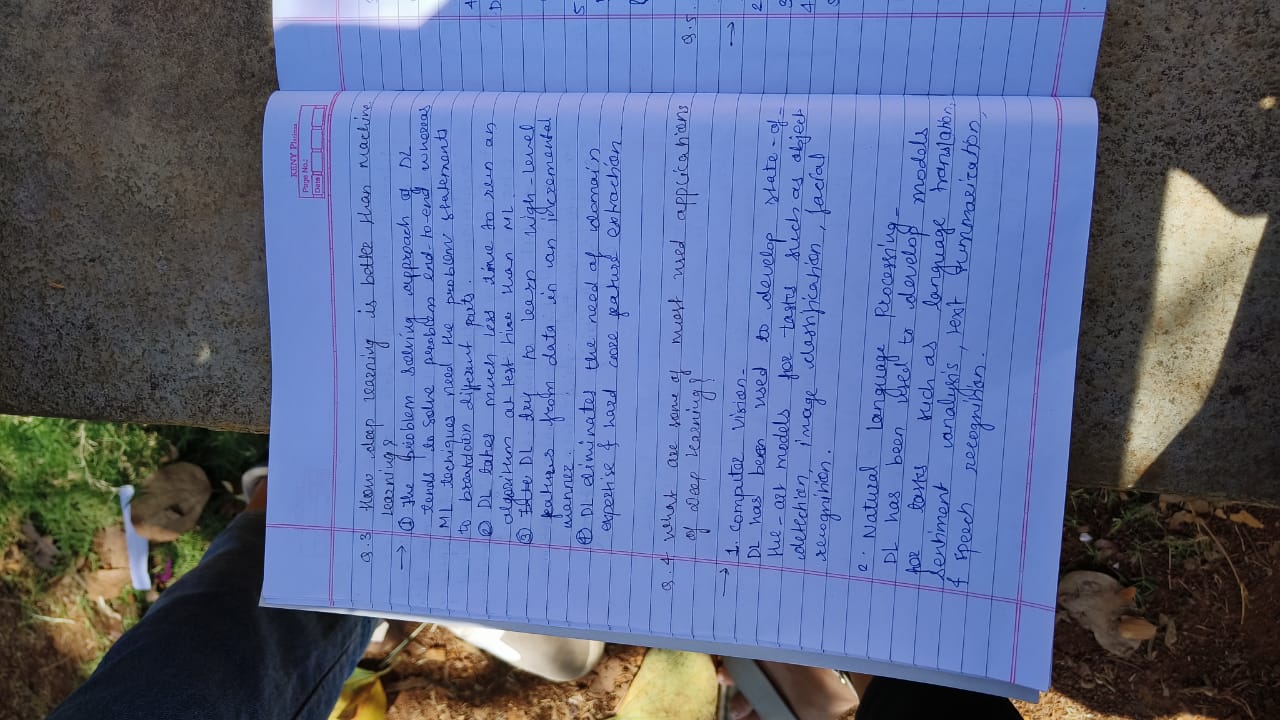 KENY Platinum
Page No.:
Date
Q.3 How deep learning is better than machine
learning?
→ ① The problem solving approach of DL
tends to solve problem end-to-end whereas
ML techiques need the problem statements
to breakdown different parts.
② DL takes much less time to run an
algorithm at test time than ML
③ DL try to learn high-level
features from data in an incremental
manner.
④ DL eliminates the need of domain
expertise & hard core feature extraction
Q.4 What are some of most used applications
of Deep learning?
→ 1. Computer Vision-
DL has been used to develop state-of-
the-art models for tasks such as object
detection, image classification, facial
recognition.
2. Natural Language Processing-
DL has been used to develop models
for tasks such as language translation,
sentiment analysis, text summarization,
& speech recognition.
Q.5
→
2
3
4
5